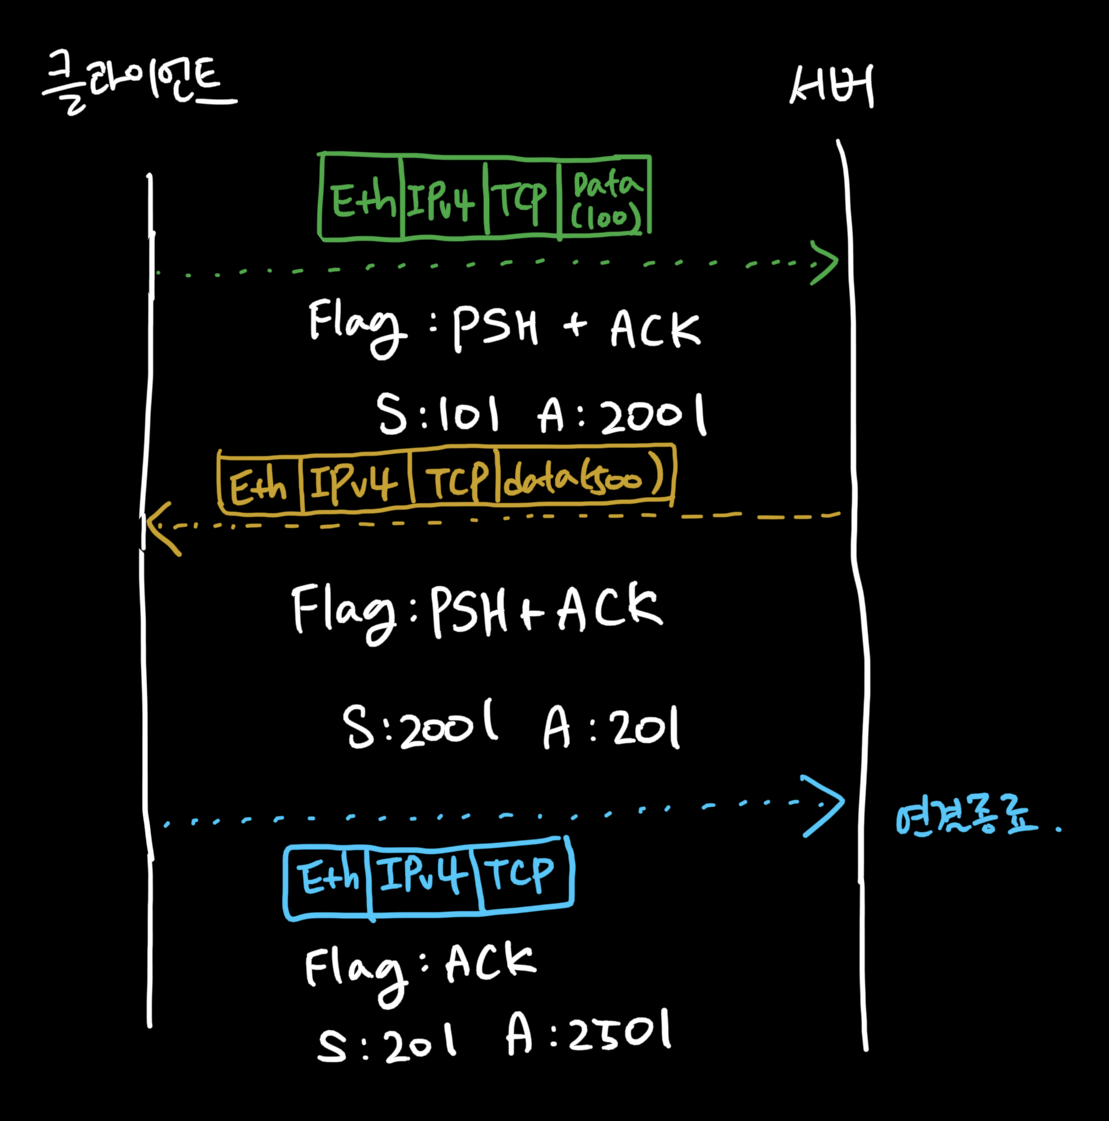 클라이언트 서버
Eth IPv4 TCP Data
(100)
Flag : PSH + ACK
S:101 A:2001
Eth IPv4 TCP data(500)
Flag:PSH+ACK
S:2001 A:201
연결종료.
Eth IPv4 TCP
Flag : ACK
S:201 A:2501